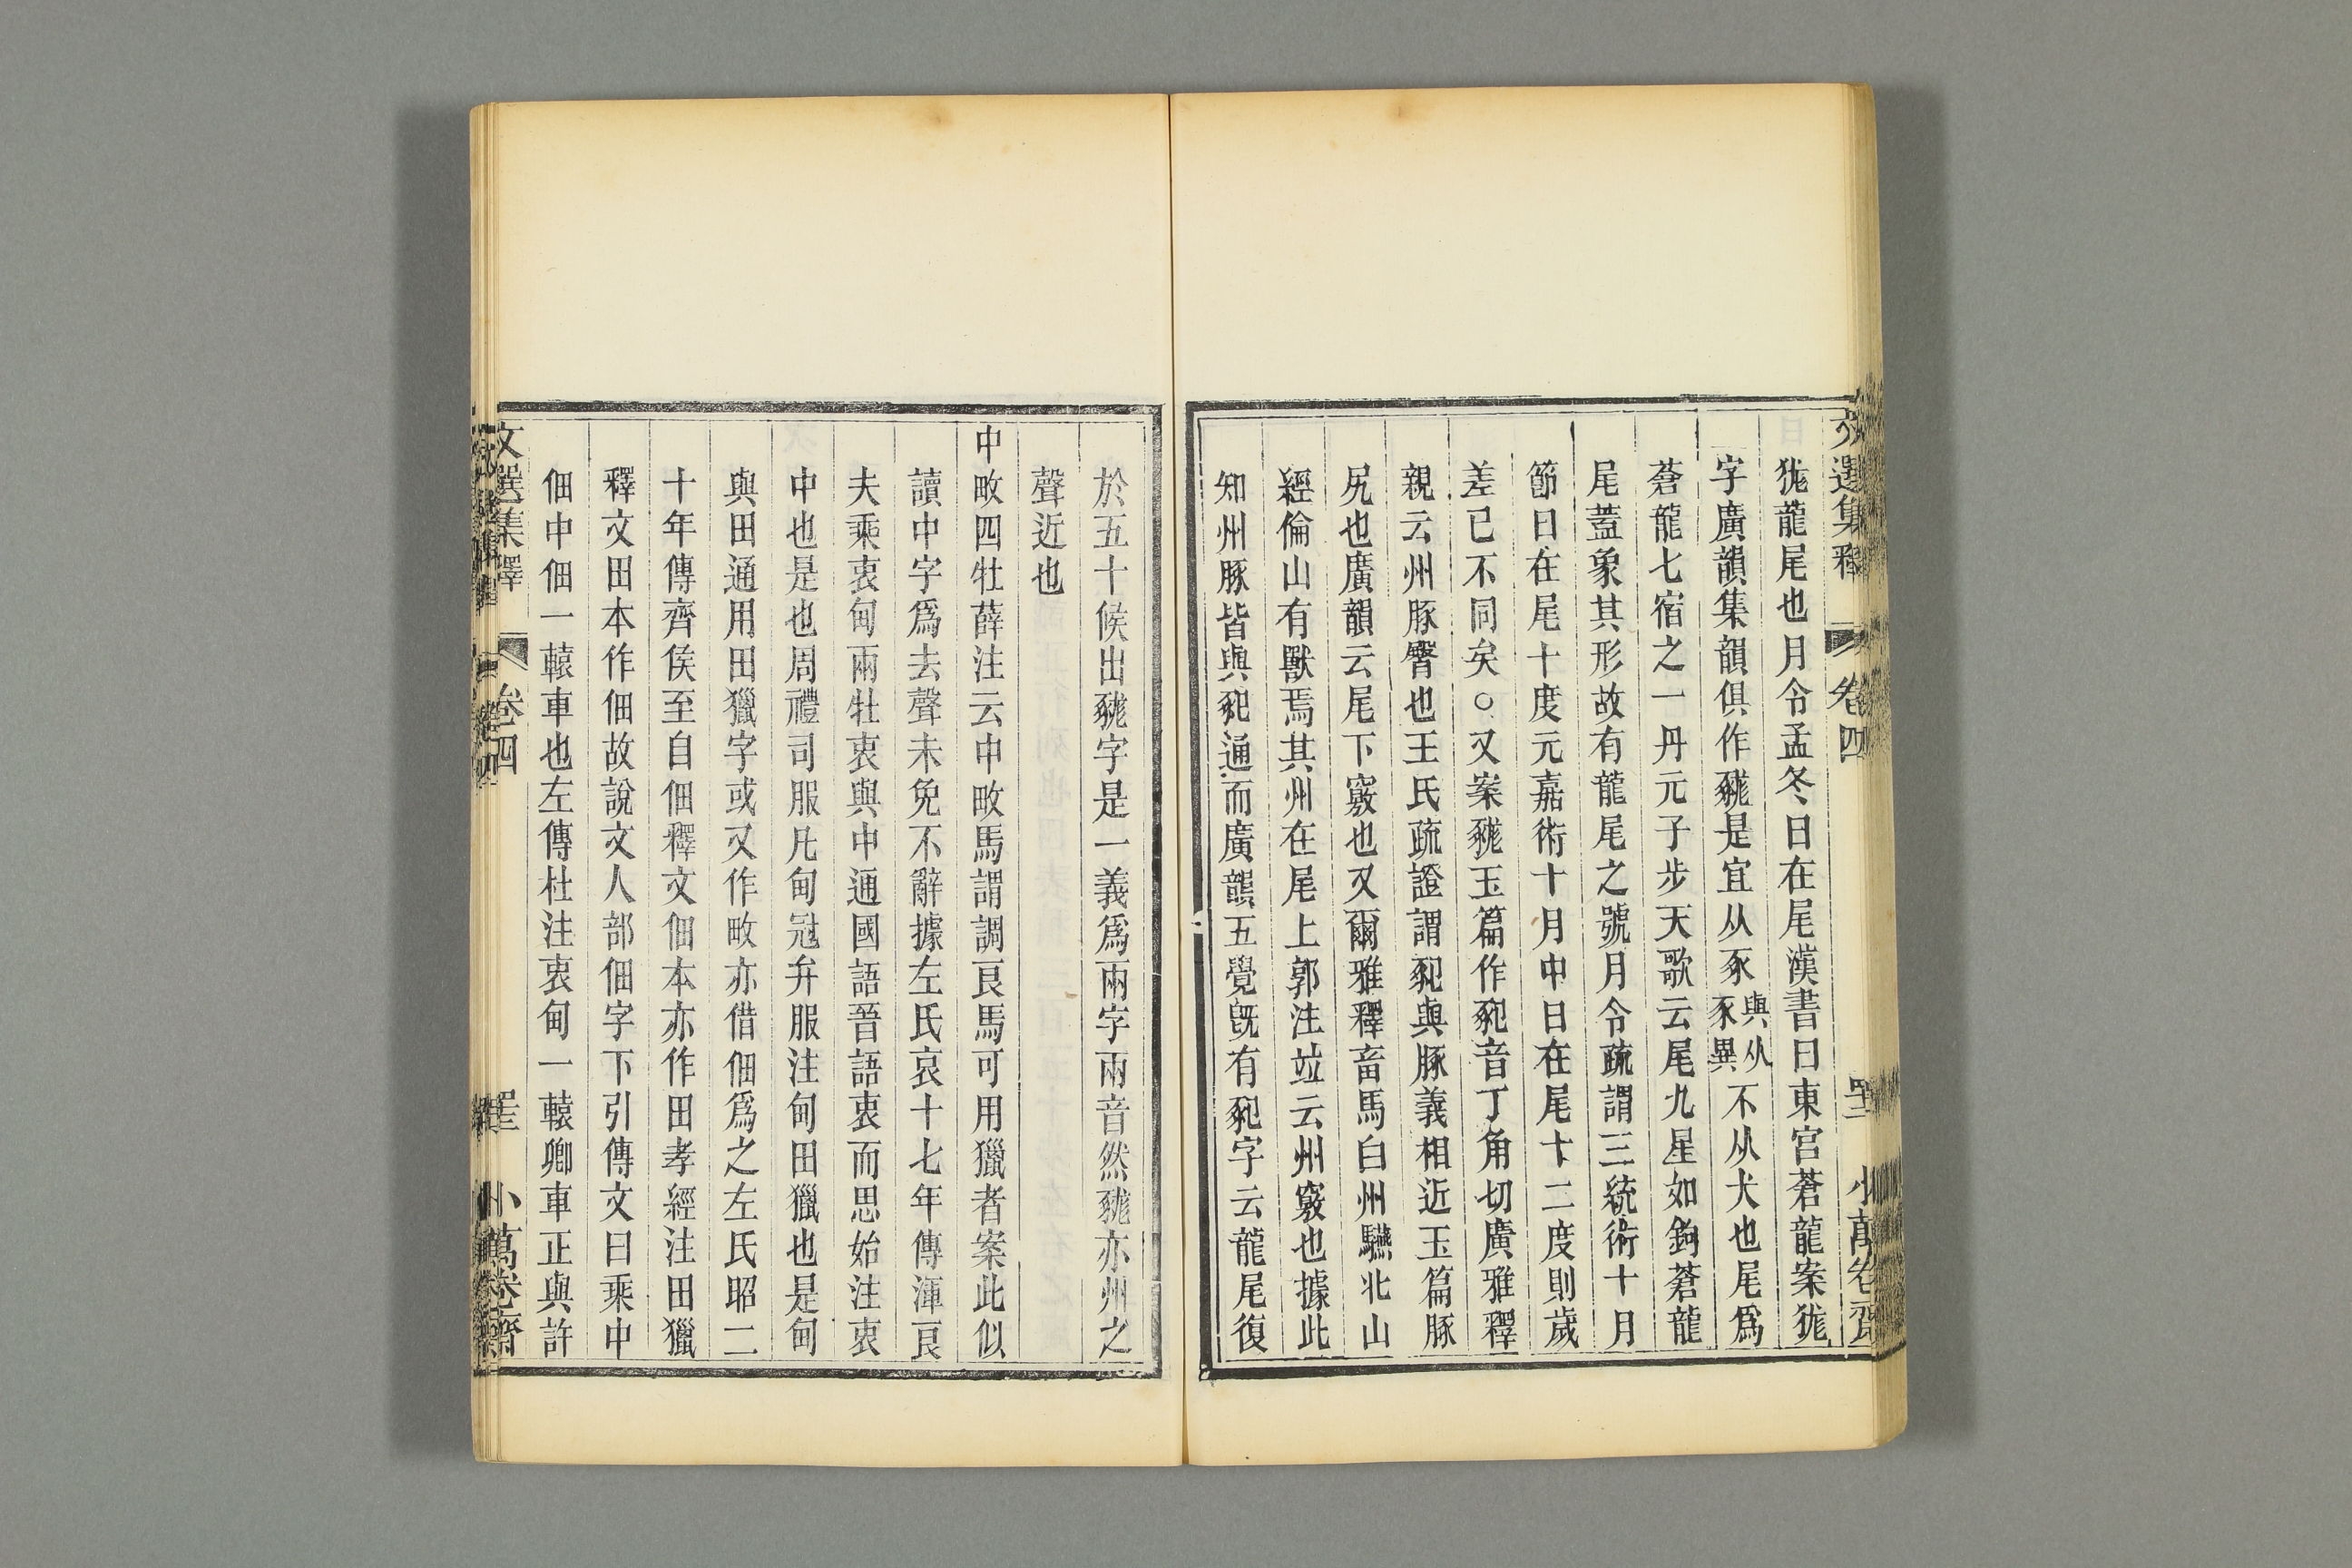 文選集釋 卷四 小萬卷齋
狵龍尾也月令孟冬日在尾漢書曰東宮蒼龍案狵
字廣韻集韻俱作豵是宜从豕與从豕異不从犬也尾爲
蒼龍七宿之一丹元子步天歌云尾九星如鉤蒼龍
尾蓋象其形故有龍尾之號月令疏謂三統術十月
節日在尾十度元嘉術十月中日在尾十二度則歲
差已不同矣○又案 玉篇作 音丁角切廣雅釋
親云州豚臀也王氏疏證謂 與豚義相近玉篇豚
尻也廣韻云尾下竅也又爾雅釋畜馬白州驠北山
經倫山有獸焉其州在尾上郭注竝云州竅也據此
知州豚皆與 通而廣韻五覺旣有 字云龍尾復
於五十候出 字是一義爲兩字兩音然 亦州之
聲近也
中畋四牡薛注云中畋馬謂調良馬可用獵者案此似
讀中字爲去聲未免不辭據左氏哀十七年傳渾良
夫乘衷甸兩牡衷與中通國語晉語衷而思始注衷
中也是也周禮司服凡甸冠弁服注甸田獵也是甸
與田通用田獵字或又作畋亦借佃爲之左氏昭二
十年傳齊侯至自佃釋文佃本亦作田孝經注田獵
釋文田本作佃故說文人部佃字下引傳文曰乘中
佃中佃一轅車也左傳杜注衷甸一轅卿車正與許
文選集釋 卷四 小萬卷齋